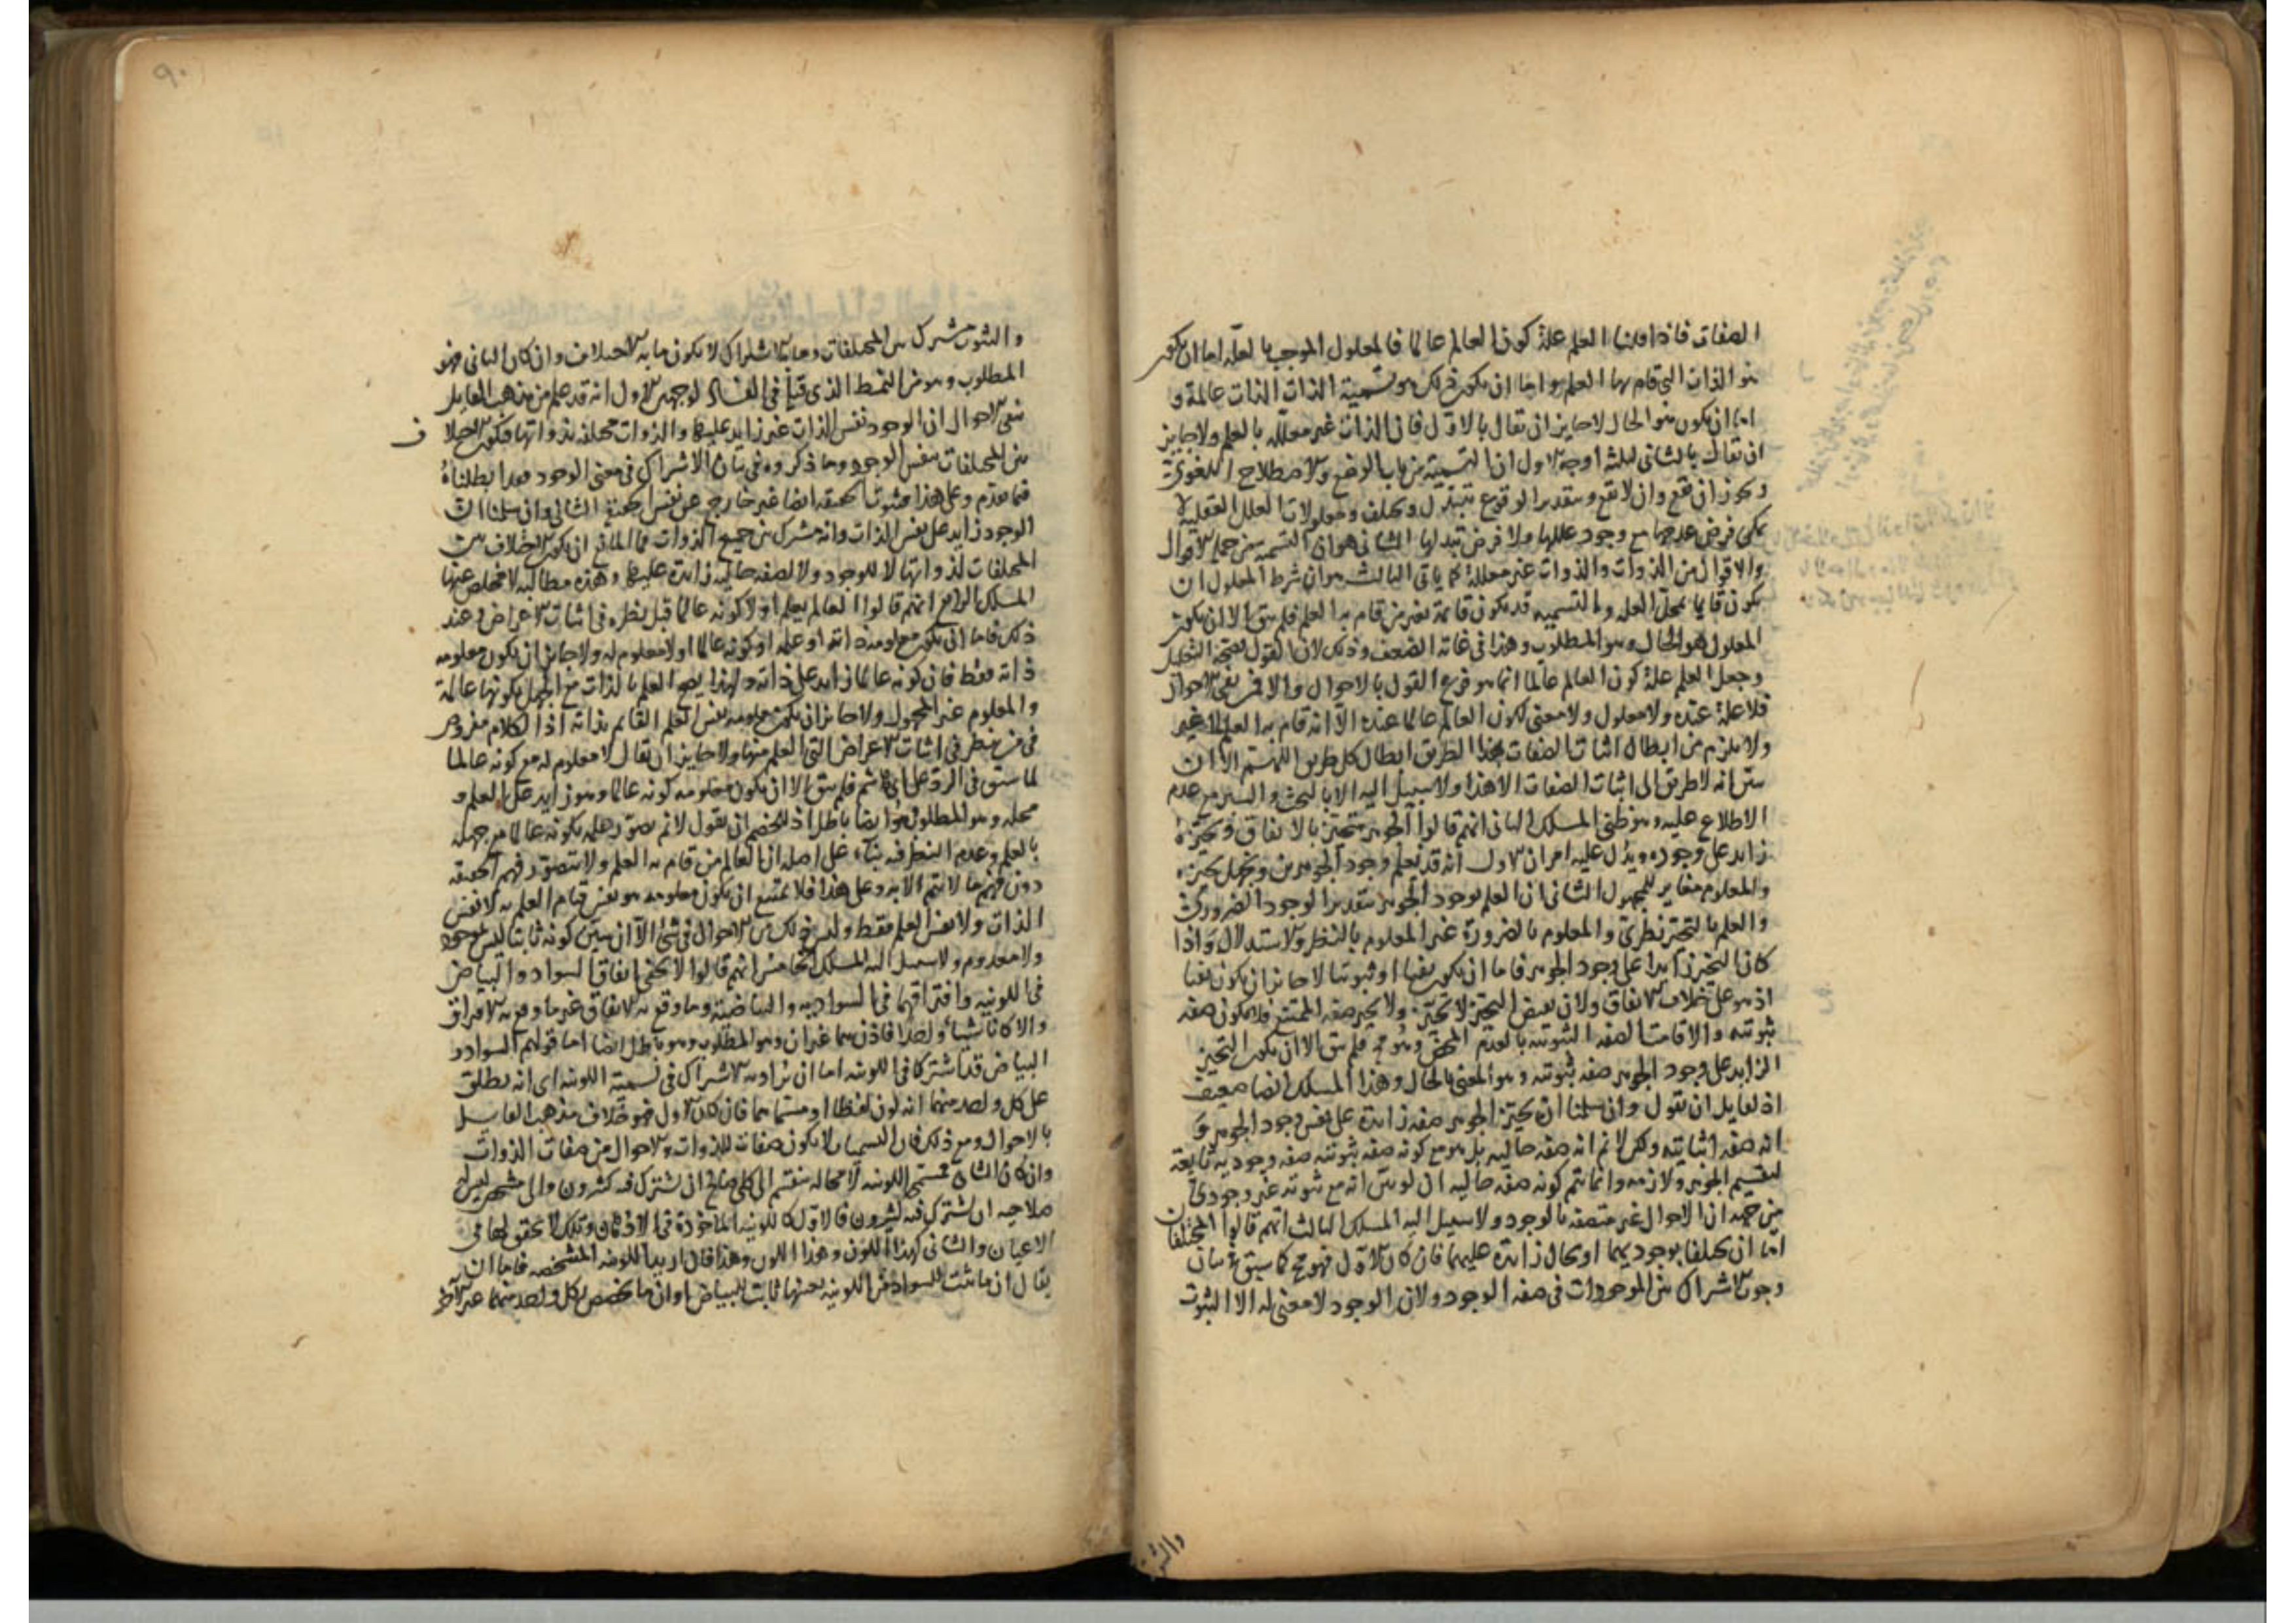 الصفات فاذا قلنا العلم علة كون العالم عالما فالمعلول الموجب بالعلة اما ان يكون
هو الذات التى قام بها العلم واما ان يكون ذلك هو تسمية الذات الذات عالمة و
اما ان يكون هو الحال لا جايز ان يقال بالاول فان الذات غير معللة بالعلم ولا جايز
ان يقال بالثانى لثلثة اوجه الاول ان التسمية من باب الوضع والاصطلاح اللغوى
ويجوز ان تقع وان لا تقع وبتقدير الوقوع تتبدل وتختلف ومعلولات العلل العقلية لا
يمكن فرض عدمها مع وجود عللها ولا فرض تبدلها الثانى هو ان التسمية من جملة الاقوال
والاقوال من الذوات والذوات غير معللة كما ياتى الثالث هو ان شرط المعلول ان
يكون قايما بمحل العلة والتسمية قد يكون قائمة بغير من قام به العلم فلم يبق الا ان يكون
المعلول هو الحال وهو المطلوب وهذا فى غاية الضعف وذلك لان القول بصحة التعليل
وجعل العلم علة كون العالم عالما انما هو فرع القول بالاحوال والا فمن نفى الاحوال
فلا علة عنده ولا معلول ولا معنى لكون العالم عالما عنده الا انه قام به العلم لا غير
ولا يلزم من ابطال اثبات الصفات بهذا الطريق ابطال كل طريق اللهم الا ان
يتبين انه لا طريق الى اثبات الصفات الا هذا ولا سبيل اليه الا بالبحث والسبر مع عدم
الاطلاع عليه وهو ظنى المسلك الثانى انهم قالوا الجوهر متحيز بالاتفاق وتحيزه
زايد على وجوده ويدل عليه امران الاول انه قد نعلم وجود الجوهر من ونجهل تحيزه
والمعلوم مغاير للمجهول الثانى ان العلم بوجود الجوهر بتقدير الوجود الضرورى
والعلم بالتحيز نظرى والمعلوم بالضرورة غير المعلوم بالنظر والاستدلال واذا
كان التحيز زايدا على وجود الجوهر فاما ان يكون نفيا او ثبوتا لا جايز ان يكون نفيا
اذ هو على خلاف الاتفاق ولان نقيض التحيز لا تحيز ولا تحيز صفة الممتنع فلا يكون صفة
ثبوتية والا قامت الصفة الثبوتية بالعدم المحض وهو مح فلم يبق الا ان يكون التحيز
الزايد على وجود الجوهر صفة ثبوتية وهو المعنى بالحال وهذا المسلك ايضا ضعيف
اذ لقايل ان يقول وان سلمنا ان تحيز الجوهر صفة زايدة على نفس وجود الجوهر و
انه صفة اثباتية ولكن لا نم انه صفة حالية بل هو مع كونه صفة ثبوتية صفة وجودية تابعة
لنفس الجوهر ولازمة وانما يتم كونه صفة حالية ان لو تبين انه مع ثبوته غير وجودى
من جهة ان الاحوال غير متصفة بالوجود ولا سبيل اليه المسلك الثالث انهم قالوا المختلفان
اما ان يختلفا بوجوديهما او بحال زايدة عليهما فان كان الاول فهو مح كما سبق من بيان
وجوب الاشتراك بين الموجودات فى صفة الوجود ولان الوجود لا معنى له الا الثبوت
والثبوت
٩٠
والثبوت مشترك بين المختلفات وما به الاشتراك لا يكون ما به الاختلاف وان كان الثانى فهو
المطلوب وهو من النمط الذى قبله فى الفساد لوجهين الاول انه قد علم من مذهب القايل
بنفى الاحوال ان الوجود نفس الذات غير زايد عليها والذوات مختلفة بذواتها فيكون الاختلاف
بين المختلفات بنفس الوجود وما ذكروه فى بيان الاشتراك فى معنى الوجود فقد ابطلناه
فيما تقدم وعلى هذا فثبوت الحقيقة ايضا غير خارج عن نفس الحقيقة الثانى وان سلمنا ان
الوجود زايد على نفس الذات وانه مشترك بين جميع الذوات فما المانع ان يكون الاختلاف بين
المختلفات لذواتها لا للوجود ولا لصفة حالية زايدة عليها وهذه مطالبة لا مخلص عنها
المسلك الرابع انهم قالوا العالم يعلم اولا كونه عالما قبل نظره فى اثبات الاعراض وعند
ذلك فاما ان يكون معلومه ذاته او علمه او كونه عالما او لا معلوم له ولا جايز ان يكون معلومه
ذاته فقط فان كونه عالما زايد على ذاته ولهذا يصح العلم بالذات مع الجهل بكونها عالمة
والمعلوم غير المجهول ولا جايز ان يكون معلومه نفس العلم القائم بذاته اذ الكلام مفروض
فى من ينظر فى اثبات الاعراض التى العلم منها ولا جايز ان يقال لا معلوم له مع كونه عالما
لما سبق فى الرد على ابى هاشم فلم يبق الا ان يكون معلومه كونه عالما وهو زايد على العلم و
محله وهو المطلوب وهو ايضا باطل اذ للخصم ان يقول لا نم تصور علمه بكونه عالما مع جهله
بالعلم وعدم النظر فيه بناء على اصله ان العالم من قام به العلم ولا يتصور فهم الحقيقة
دون فهم ما لا تتم الا به وعلى هذا فلا يمتنع ان يكون معلومه هو نفس قيام العلم به لا نفس
الذات ولا نفس العلم فقط وليس ذلك من الاحوال فى شئ الا ان يتبين كونه ثابتا ليس بموجود
ولا معدوم ولا سبيل اليه المسلك الخامس انهم قالوا لا يخفى اتفاق السواد والبياض
فى اللونية وافتراقهما فى السوادية والبياضية وما وقع به الاتفاق غير ما وقع به الافتراق
والا كانا شيئا واحدا فاذن هما غيران وهو المطلوب وهو باطل ايضا اما قولهم السواد و
البياض قد اشتركا فى اللونية اما ان يراد به الاشتراك فى تسمية اللونية اى انه يطلق
على كل واحد منهما انه لون لفظا او مسماهما فان كان الاول فهو خلاف مذهب القايل
بالاحوال ومع ذلك فان التسميات لا يكون صفات للذوات والاحوال من صفات الذوات
وان كان الثانى فمسمى اللونية لا محالة ينقسم الى كلى صالح ان يشترك فيه كثيرون والى مشخص ليس له
صلاحية ان يشترك فيه كثيرون فالاول كاللونية الماخوذة فى الاذهان وتلك لا تحقق لها فى
الاعيان والثانى كهذا اللون وهذا اللون وهذا فان اريد اللونية المشخصة فاما ان
يقال ان ما ثبت للسواد من اللونية بعينها ثابت للبياض او ان ما تخصص بكل واحد منهما غير الآخر